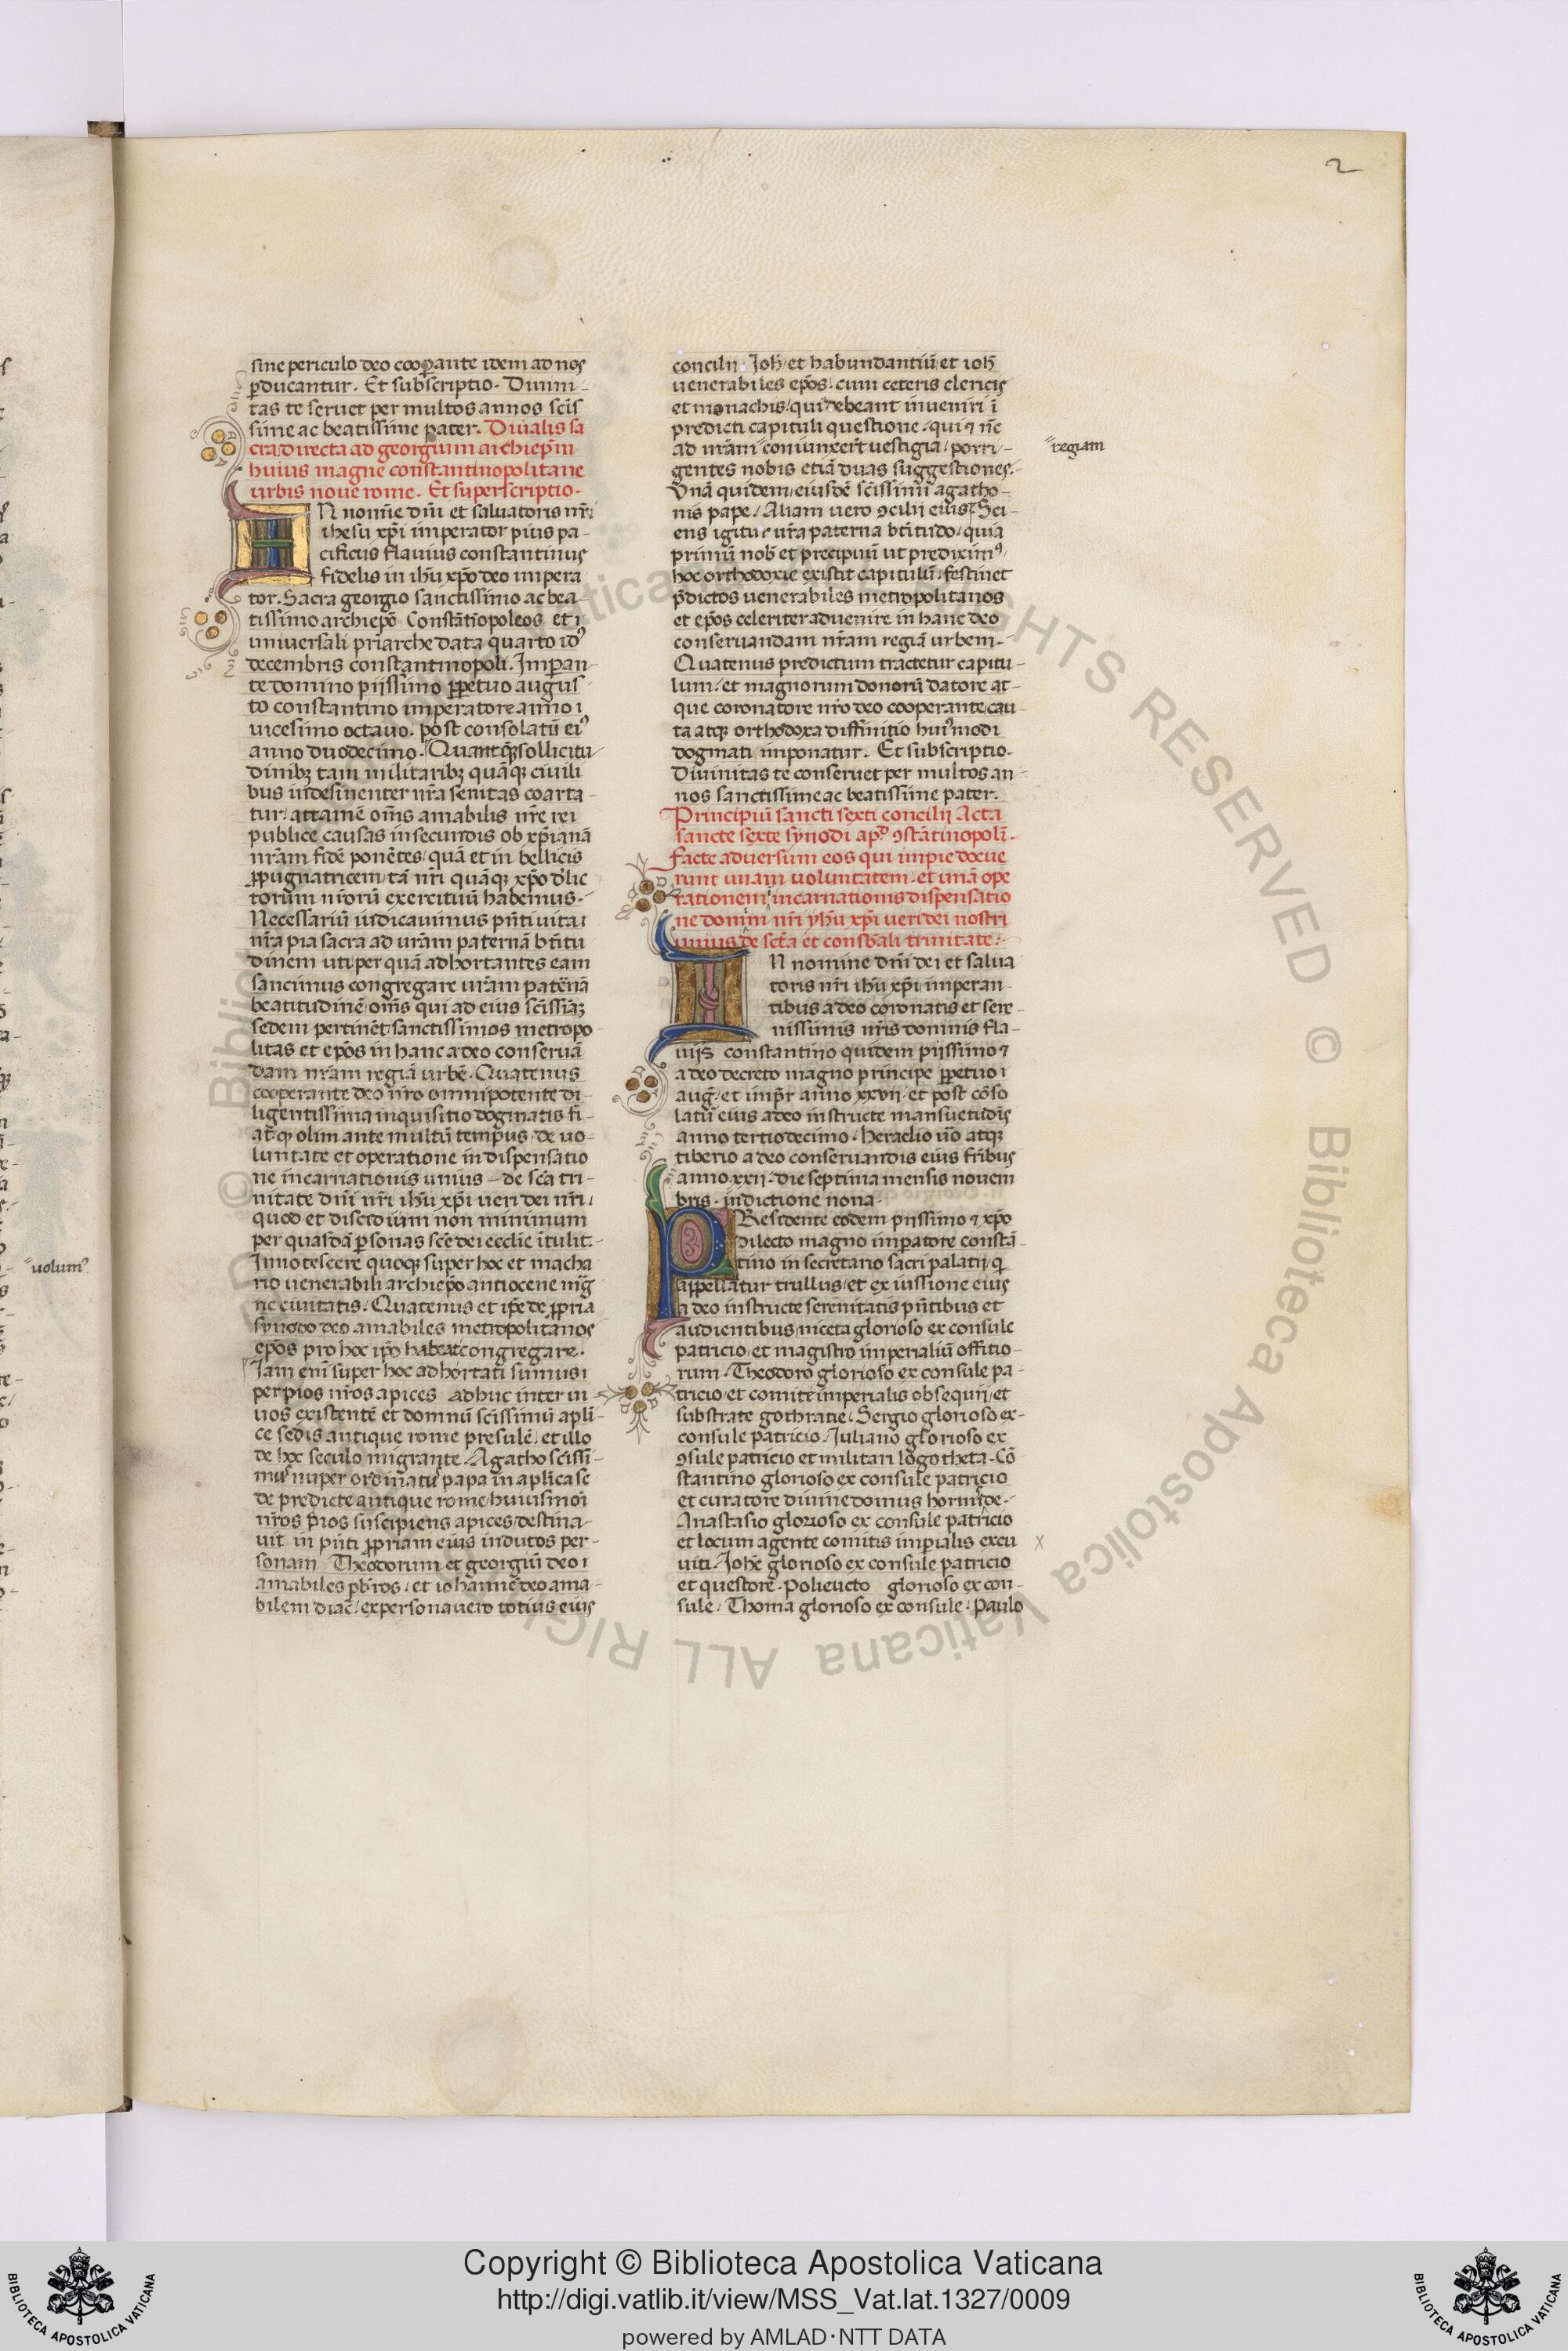 2
sine periculo deo coop̱ante idem ad nos
ꝑducantur. Et subscriptio. Diuini-
tas te seruet per multos annos scīs
sime ac beatissime pater. Diuialis sa
cra directa ad georgium archiep̄m
huius magne constantinopolitane
urbis noue rome. Et superscriptio.
IN nomīe dn̄i et saluatoris nr̄i
ihesu xp̄i imperator pius pa-
cificus flauius constantinus
fidelis in ih̄u xp̄o deo impera
tor. Sacra georgio sanctissimo ac bea-
tissimo archiep̄o Constātīopoleos et i
uniuersali pr̄iarche data quarto idꝰ
decembris constantinopoli. Imꝑan-
te domino piissimo ꝑpetuo augus-
to constantino imperatore anno i
uicesimo octauo. post consolatū eiꝰ
anno duodecimo. Quantꝙ sollicitu-
dinibꝫ tam militaribꝫ quāqꝫ ciuili
bus indesinenter nr̄a s̄enitas coarta-
tur/ attamē om̄s amabilis nr̄e rei
publice causas in secundis ob xp̄ianā
nr̄am fidē ponētes/ quā et in bellicis
ꝓpugnatricem/ tā nr̄i quāqꝫ xp̄o dīlic
torum nr̄orū exercituū habemus.
Necessariū iudicauimus pn̄ti uita i
nr̄a pia sacra ad ur̄am paternā btītu
dinem uti per quā adhortantes eam
sancimus congregare ur̄am pat̄nā
beatitudinē/ om̄s qui ad eius scīssimā
sedem pertinēt sanctissimos metropo-
litas et ep̄os in hanc a deo conseruā
dam nr̄am regiā urbē. Quatenus
cooperante deo nr̄o omnipotente di-
ligentissima inquisitio dogmatis fi-
at. qꝫ olim ante multū tempus/ de uo-
luntate et operatione in dispensatio
ne incarnationis unius – de scā tri-
nitate dn̄i nr̄i ih̄u xp̄i ueri dei nr̄i/
quod et discidium non minimum
per quasdā ꝑsonas scē dei ecclīe ītulit.
Innotescere quoqꝫ super hoc et macha
rio uenerabili archiep̄o antiocene
ne ciuitatis. Quatenus et ip̄e de ꝓpria
synodo deo amabiles metropolitanos
ep̄os pro hoc ip̄o habeat congregare.
Iam eni super hoc adhortati sumus i
per pios nr̄os apices adhuc inter ui-
uos existentē et domnū scīssimū apli-
ce sedis antique rome presulē/ et illo
de hoc seculo migrante. Agatho scīssi-
mꝰ nuper ordinatꝰ papa in aplica se
de predicte antique rome/ huiusmoī
nr̄os p̄ios suscipiens apices/ destina-
uit in pn̄ti ꝓpriam eius indutos per-
sonam Theodorum et georgiū deo i
amabiles pbr̄os/ et iohannē deo ama-
bilem diac̄/ ex persona uero totius eius
concilii Ioh̄/ et habundantiū/ et ioh̄
uenerabiles ep̄os/ cum ceteris clericis
et monachis/ qui debeant inueniri ī
predicti capituli questione. qui ⁊ nc̄
ad nr̄am coniunxer̄t uestigia/ porri-
gentes nobis etiā duas suggestiones.
Vnā quidem/ eiusdē scīssimi agatho-
nis pape/ Aliam uero ꝯcilii eius. Sci-
ens igitur ur̄a paterna btītudo/ quia
primū nob̄ et precipuū ut prediximꝰ/
hoc orthodoxie existit capitulū/ festinet
p̄dictos uenerabiles metropolitanos
et ep̄os celeriter aduenire in hanc deo
conseruandam nr̄am regiā urbem.
Quatenus predictum tractetur capitu-
lum/ et magnorum donorū datore at-
que coronatore nr̄o deo cooperante/ cau-
ta atqꝫ orthodoxa diffinitio huiꝰmodi
dogmati imponatur. Et subscriptio.
Diuinitas te conseruet per multos an-
nos sanctissime ac beatissime pater.
Principiū sancti sexti concilii Acta
sancte sexte synodi apᵈ ꝯstātinopolī-
facte aduersum eos qui impie docue
runt unam uoluntatem. et unā ope
rationem incarnationis dispensatio
ne domini nr̄i yh̄u xp̄i ueri dei nostri
unius de scā et consb̄ali trinitate.
IN nomine dn̄i dei et salua
toris nr̄i ih̄u xp̄i/ imperan-
tibus a deo coronatis et sere-
nissimis nr̄is domnis fla-
uiis constantino quidem piissimo ⁊
a deo decreto magno principe ꝑpetuo i
auḡ. et imp̄r anno xxvii. et post cōso
latū eius a deo instructe mansuetidīs
anno tertiodecimo. Heraclio ūo atqꝫ
tiberio a deo conseruandis eius fr̄ibus
anno xxii. die septima mensis nouem
bris. indictione nona.
PResidente eodem piissimo ⁊ xp̄o
dilecto magno imꝑatore constā-
tino in secretario sacri palatii/ ꝙ
appellatur trullus/ et ex iussione eius
a deo instructe serenitatis pn̄tibus et
audientibus/ niceta glorioso ex consule
patricio/ et magistro imperialiū offitio-
rum. Theodoro glorioso ex consule pa-
tricio/ et comite imperialis obsequii/ et
substrate gothratie. Sergio glorioso ex-
consule patricio. Iuliano glorioso ex
ꝯsule patricio et militari logotheta. Cō
stantino glorioso ex consule patricio
et curatore diuine domus hormisde.
Anastasio glorioso ex consule patricio
et locum agente comitis imꝑialis excu
uiti. Ioh̄e glorioso ex consule patricio
et questore. Polieucto glorioso ex con-
sule. Thoma glorioso ex consule. Paulo
regiam
uolumꝰ
x
© Biblioteca Apostolica Vaticana ALL RIGHTS RESERVED
Copyright © Biblioteca Apostolica Vaticana
http://digi.vatlib.it/view/MSS_Vat.lat.1327/0009
powered by AMLAD·NTT DATA
BIBLIOTECA APOSTOLICA VATICANA
BIBLIOTECA APOSTOLICA VATICANA